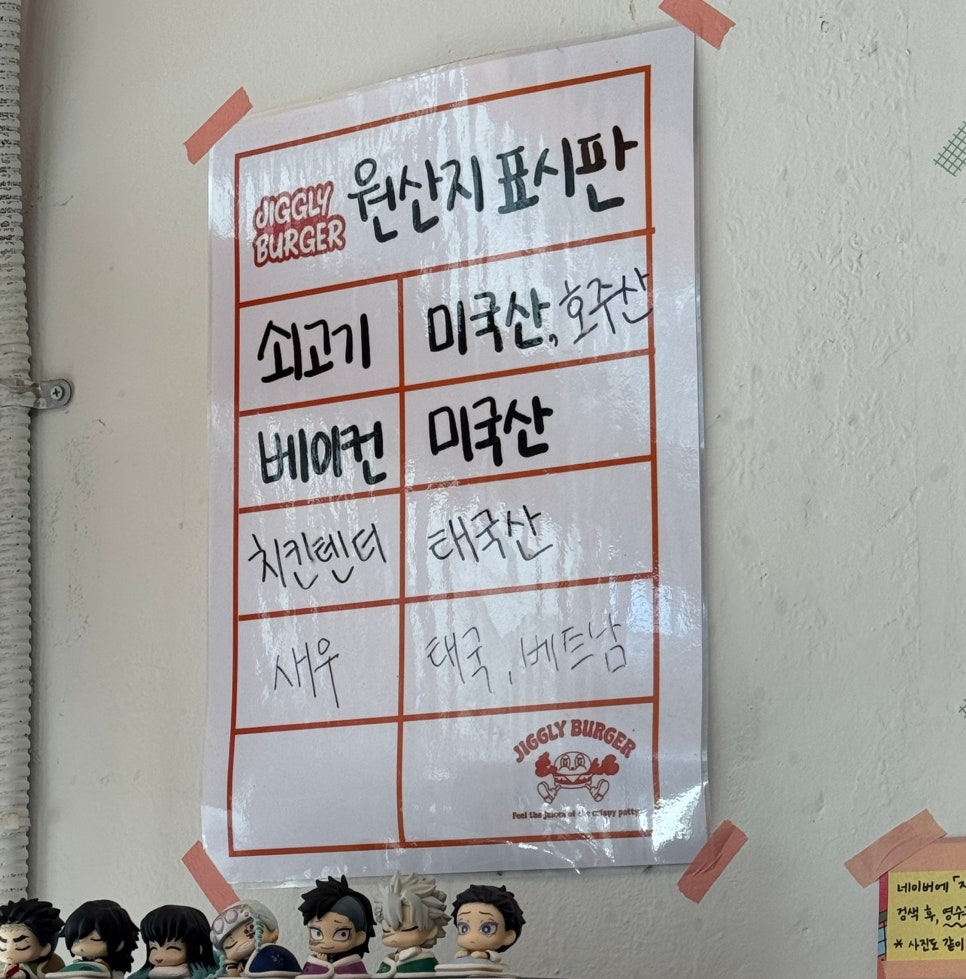 JIGGLY
BURGER
원산지 표시판
쇠고기 미국산, 호주산
베이컨 미국산
치킨텐더 태국산
새우 태국, 베트남
JIGGLY BURGER
Feel the juices of the crispy patty
네이버에 「
검색 후, 영수
* 사진도 같이